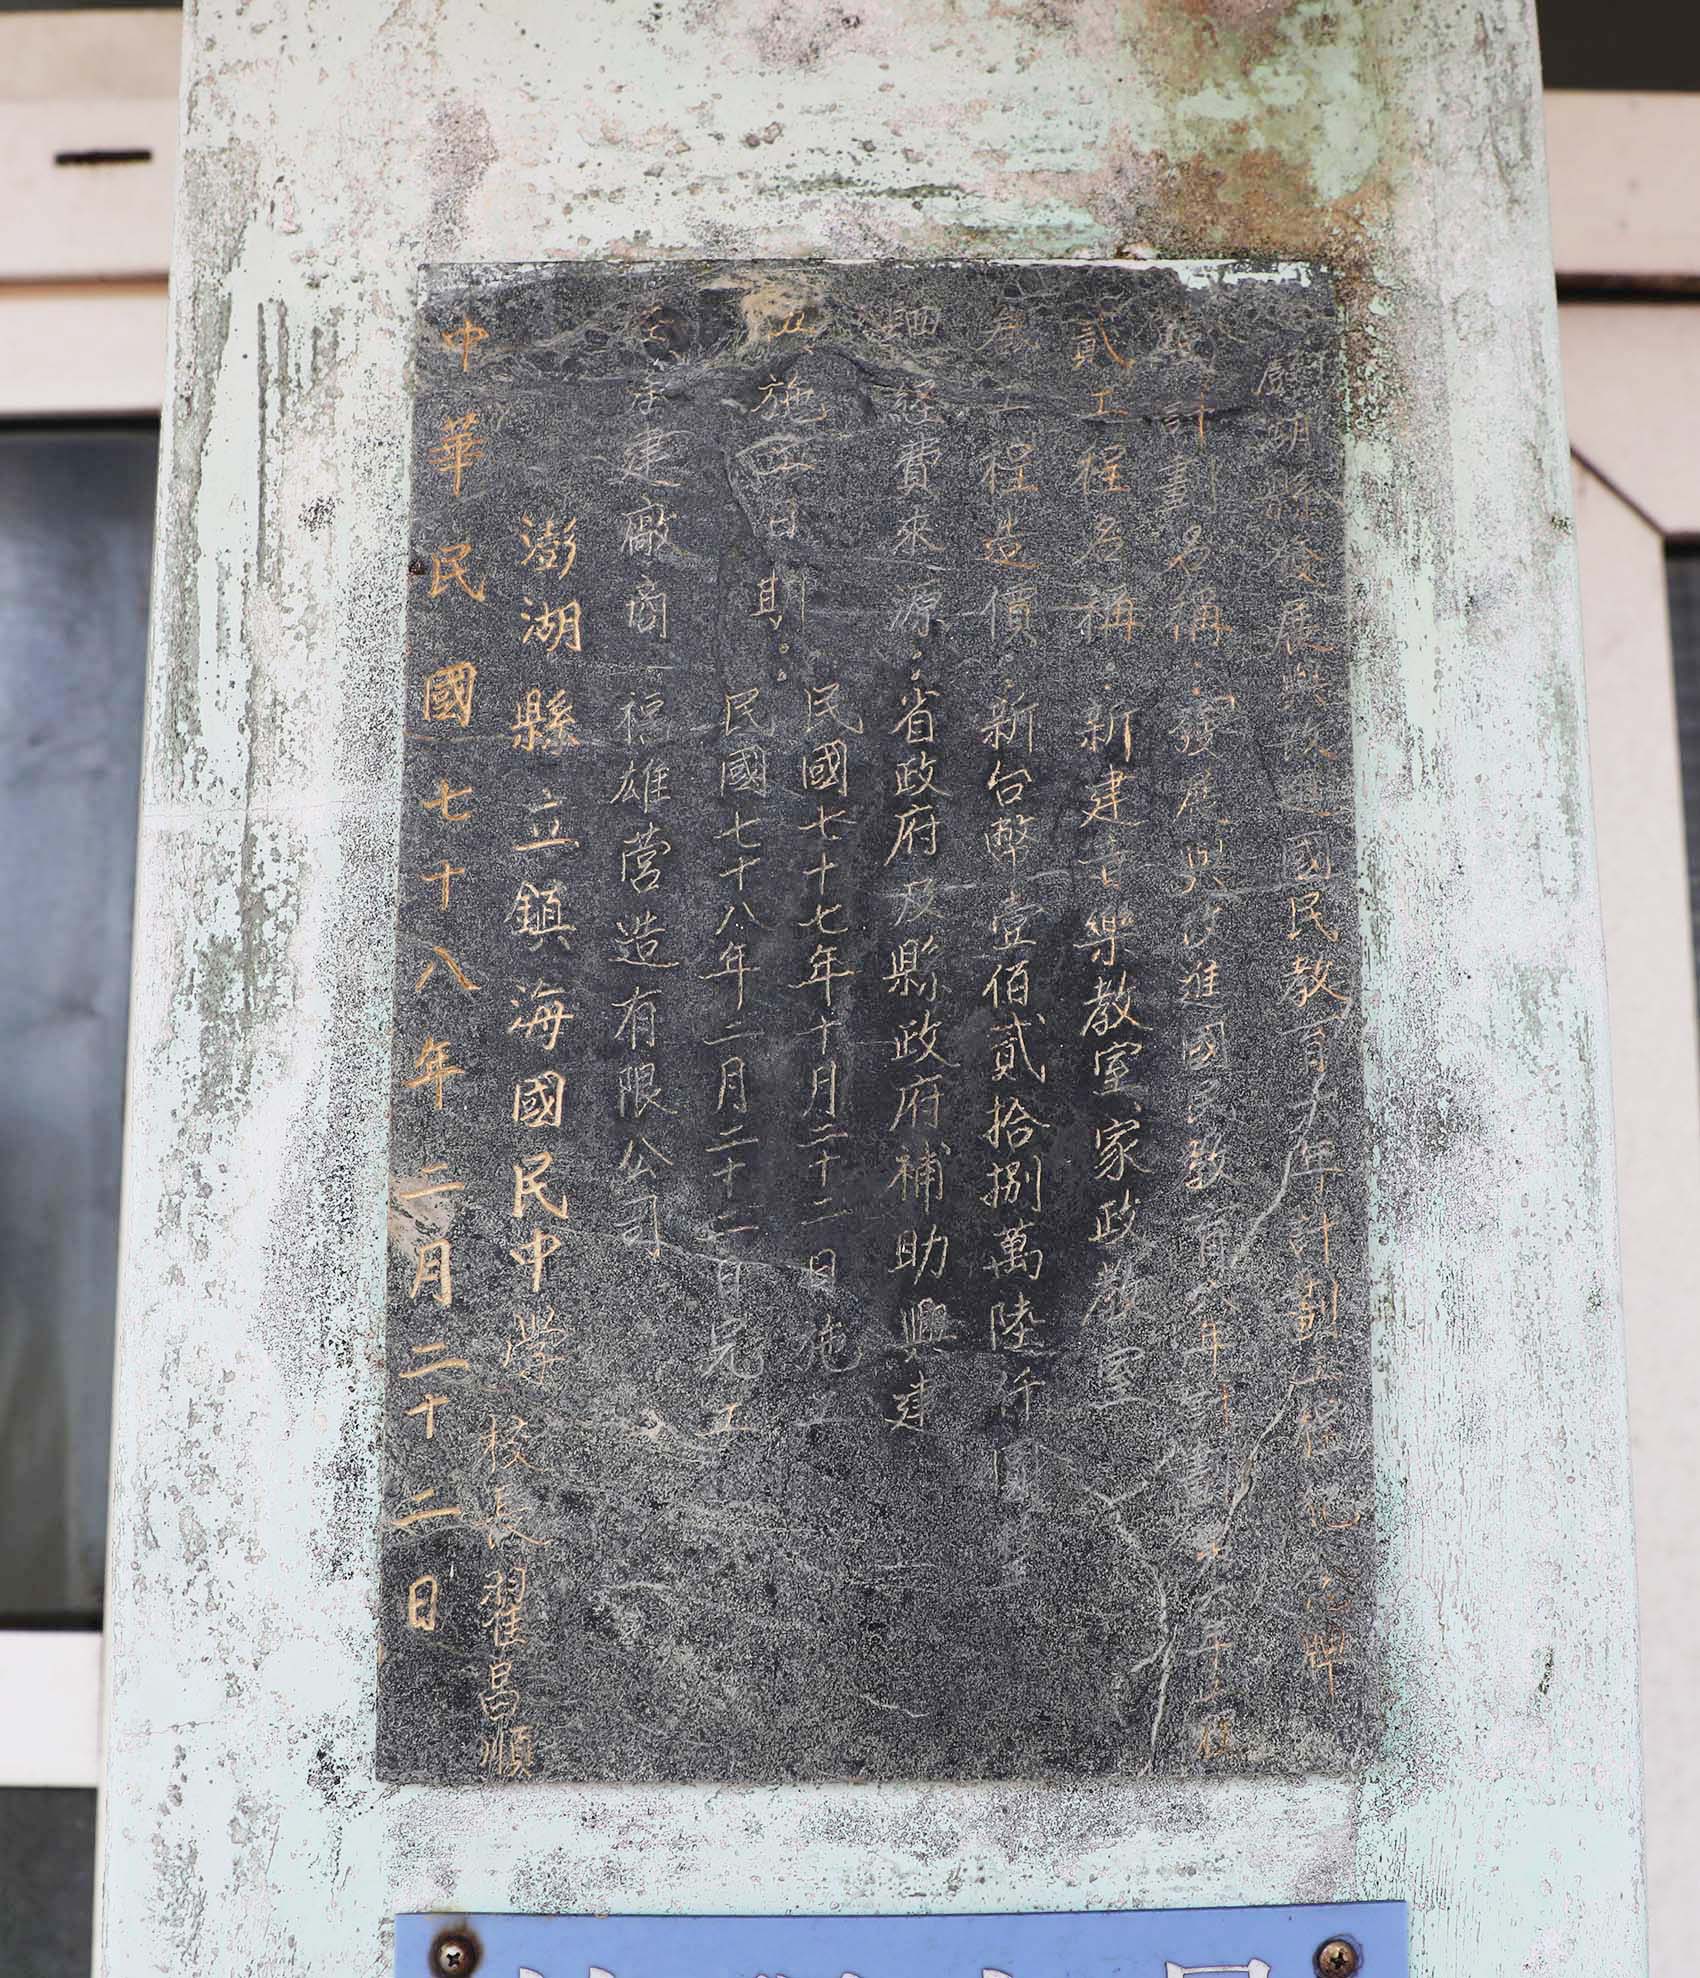 縣發展與改進國民教育六年計劃工程記念牌
計劃名稱:「發展與改進國民教育六年計劃
貳工程名稱:新建音樂教室家政教室
叁工程造價:新台幣壹佰貳拾捌萬陸仟圓
肆經費來源:省政府及縣政府補助興建
伍施工日期:民國七十七年十月二十二日施工
民國七十八年二月二十二日完工
承建廠商 福雄營造有限公司
澎湖縣立鎮海國民中學 校長翟昌順
中華民國七十八年二月二十二日